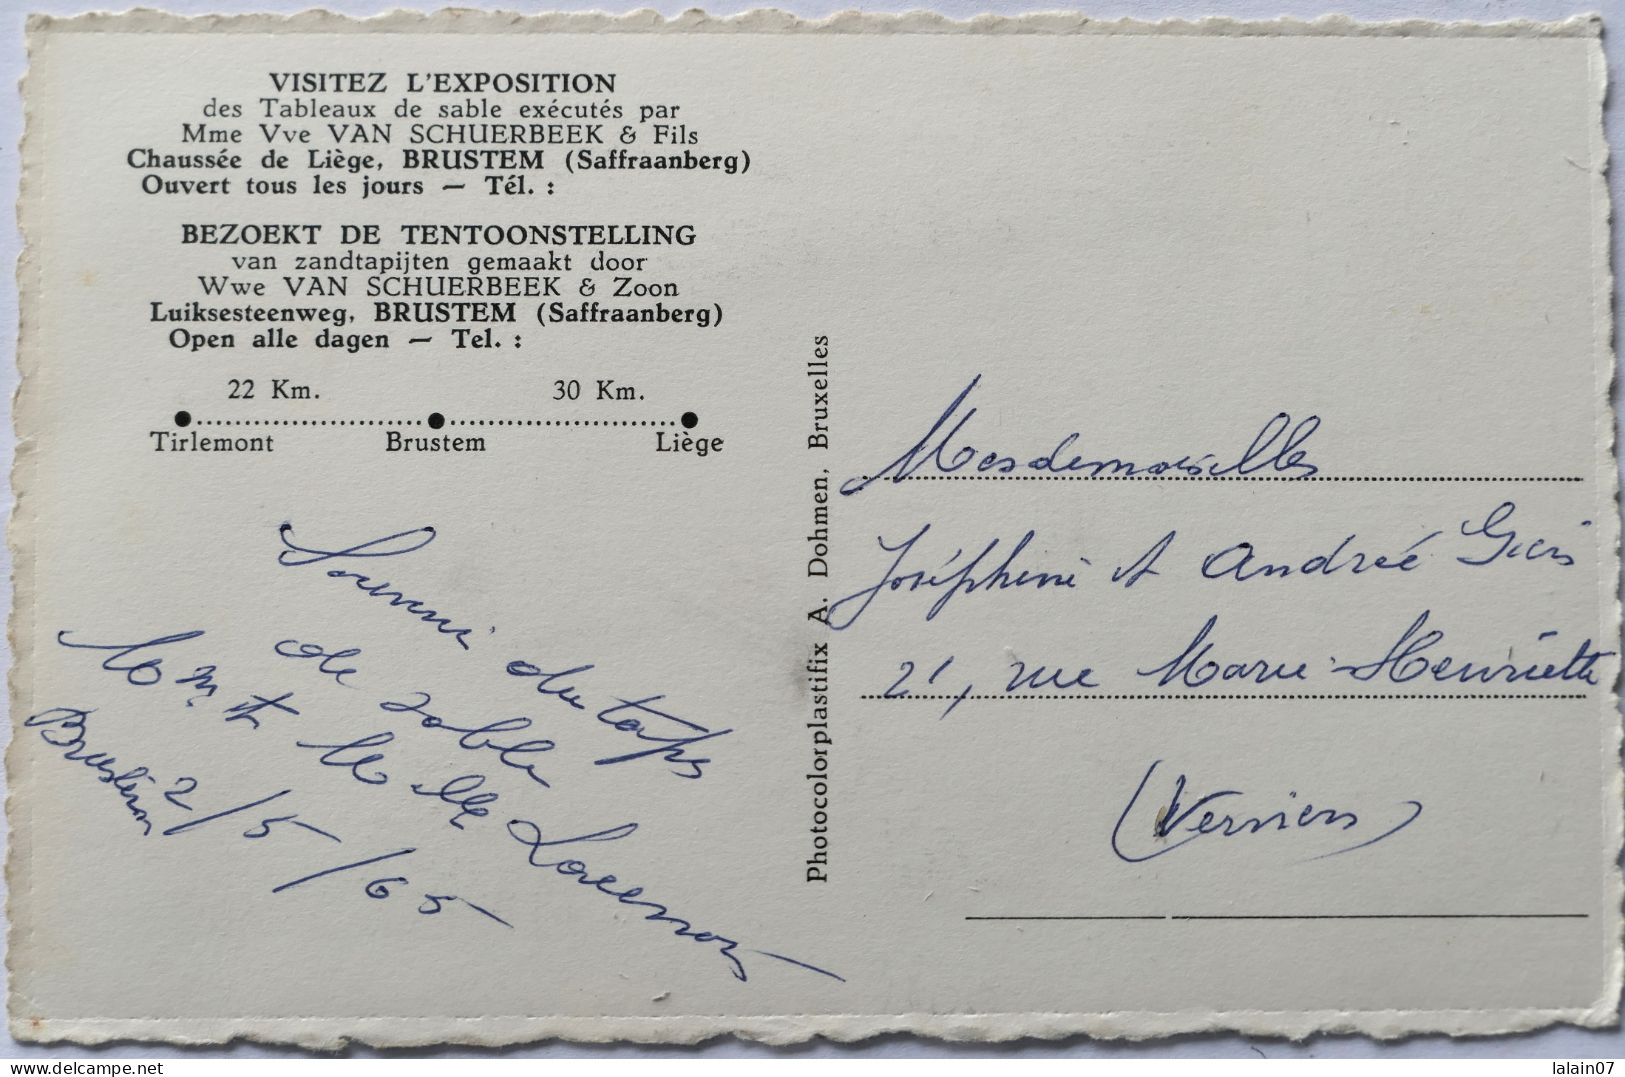 VISITEZ L'EXPOSITION
des Tableaux de sable exécutés par
Mme Vve VAN SCHUERBEEK & Fils
Chaussée de Liège, BRUSTEM (Saffraanberg)
Ouvert tous les jours — Tél. :
BEZOEKT DE TENTOONSTELLING
van zandtapijten gemaakt door
Wwe VAN SCHUERBEEK & Zoon
Luiksesteenweg, BRUSTEM (Saffraanberg)
Open alle dagen — Tel. :
22 Km. 30 Km.
Tirlemont Brustem Liège
Souvenir du tapis
de sable
Mr et Melle
Brustem 2/5/65
Photocolorplastifix A. Dohmen, Bruxelles
Mesdemoiselles
Joséphine et Andrée
21, rue Marie-Henriette
(Verviers)
delcampe.net
lalain07